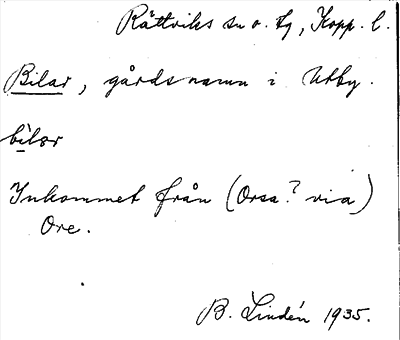 Rättviks sn o. tg, Kopp. l.
Bilar, gårdsnamn i Utby.
bìlar
Inkommet från (Orsa? via)
Ore.
B. Lindén 1935.